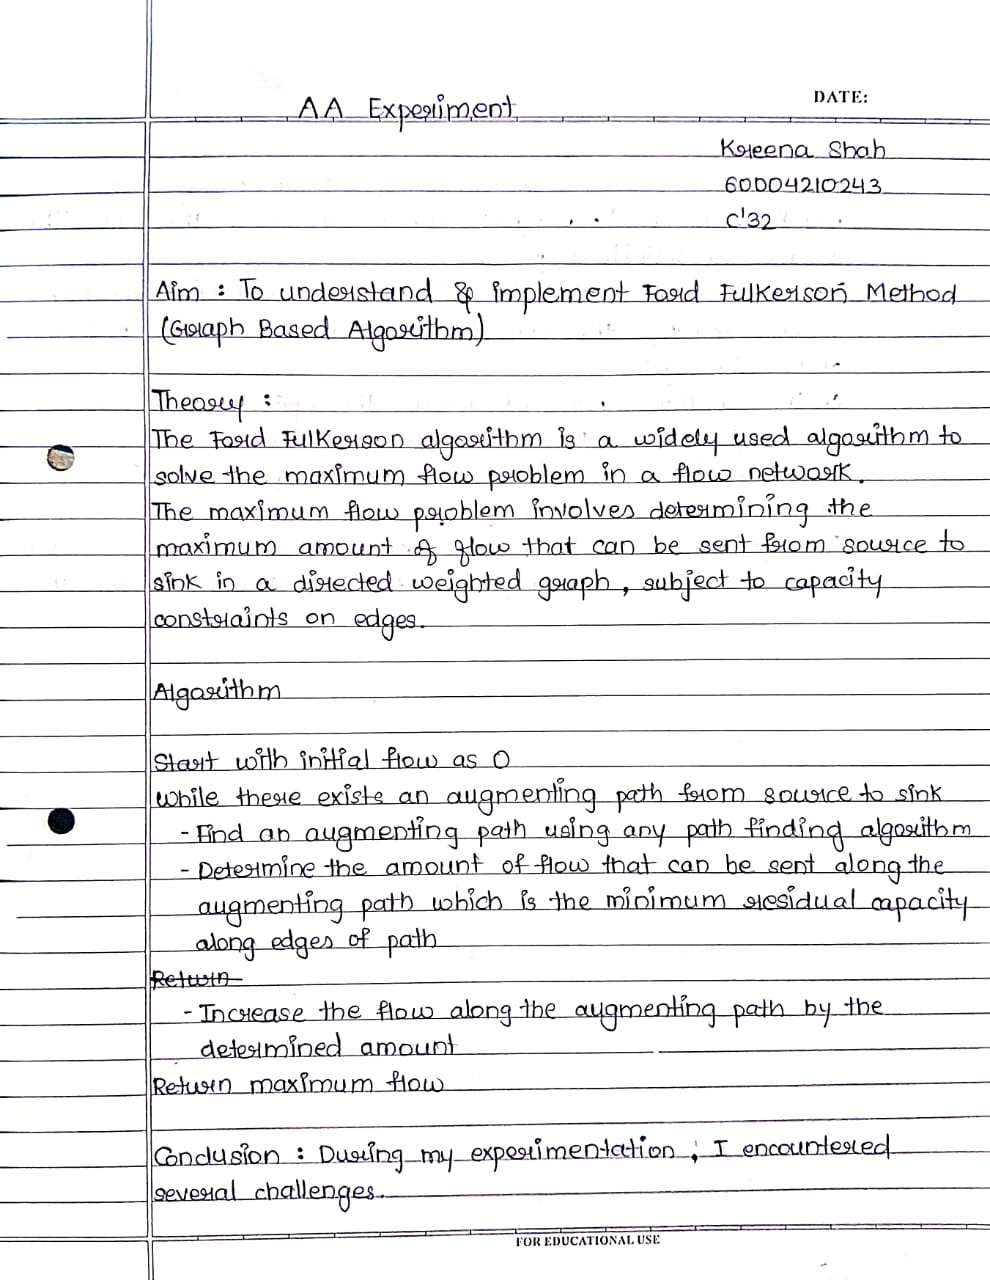 AA Experiment
DATE:
Kreena Shah
60004210243
C'32
Aim : To understand & implement Ford Fulkerson Method
(Graph Based Algorithm)
Theory :
The Ford Fulkerson algorithm is a widely used algorithm to
solve the maximum flow problem in a flow network.
The maximum flow problem involves determining the
maximum amount of flow that can be sent from source to
sink in a directed weighted graph, subject to capacity
constraints on edges.
Algorithm
Start with initial flow as 0
While there exists an augmenting path from source to sink
- Find an augmenting path using any path finding algorithm
- Determine the amount of flow that can be sent along the
augmenting path which is the minimum residual capacity
along edges of path
Return
- Increase the flow along the augmenting path by the
determined amount
Return maximum flow
Conclusion : During my experimentation, I encountered
several challenges.
FOR EDUCATIONAL USE